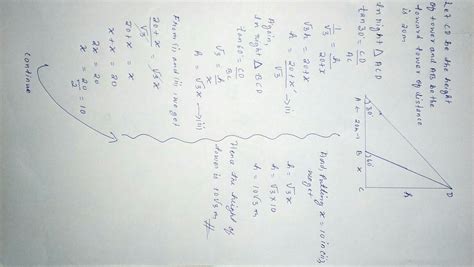 Let CD be the height
of tower and AB be the
toward tower of distance
is 20m
In right △ ACD
tan30° = CD/AC
1/√3 = h/20+x
√3h = 20+x
h = 20+x/√3 →(i)
Again,
In right △ BCD
tan60° = CD/BC
√3 = h/x
h = √3x →(ii)
From (i) and (ii), we get
20+x/√3 = √3x
20+x = 3x
2x = 20
x = 20/2 = 10
continue
D
30°
60°
h
A ← 20m → B x C
And, putting x = 10 in (ii)
we get
h = √3x
h = √3×10
h = 10√3m
Hence the height of
tower is 10√3m #